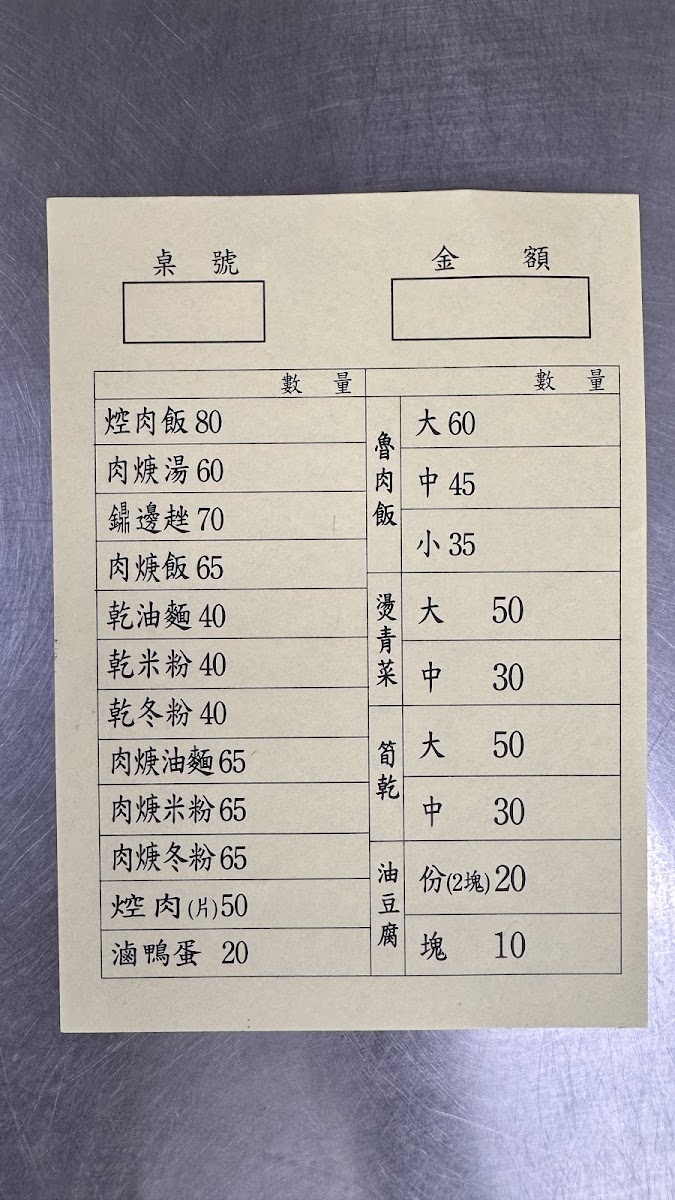 桌號
金額
數量
焢肉飯 80
肉焿湯 60
鼎邊趖 70
肉焿飯 65
乾油麵 40
乾米粉 40
乾冬粉 40
肉焿油麵 65
肉焿米粉 65
肉焿冬粉 65
焢肉(片) 50
滷鴨蛋 20
數量
魯肉飯
大 60
中 45
小 35
燙青菜
大 50
中 30
筍乾
大 50
中 30
油豆腐
份(2塊) 20
塊 10